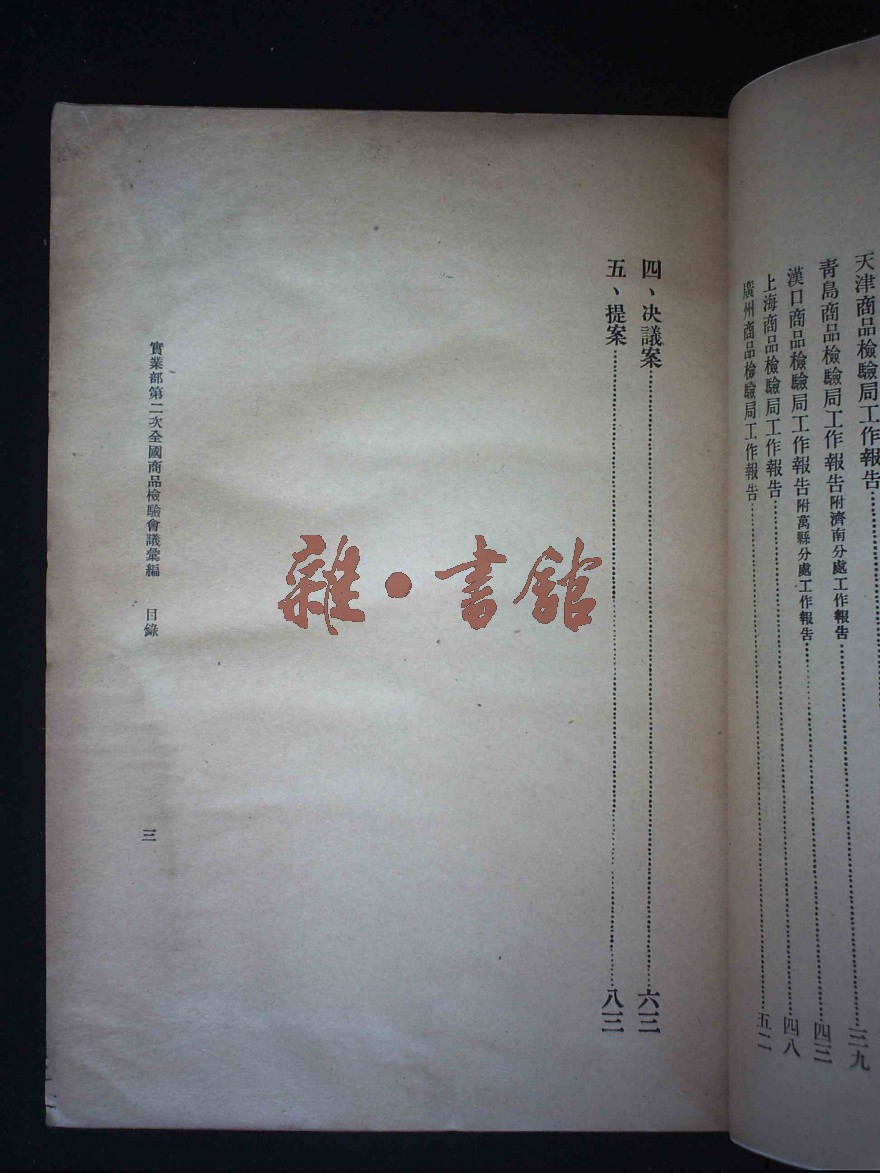 天津商品檢驗局工作報告……
青島商品檢驗局工作報告附濟南分處工作報告……三九
漢口商品檢驗局工作報告附萬縣分處工作報告……四三
上海商品檢驗局工作報告……四八
廣州商品檢驗局工作報告……五二
四、決議案……六三
五、提案……八三
實業部第二次全國商品檢驗會議彙編 目錄 三
雜·書館